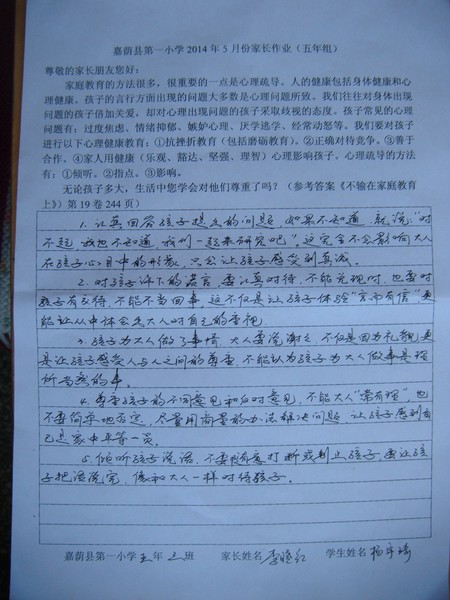 嘉荫县第一小学 2014 年 5 月份家长作业（五年组）
尊敬的家长朋友您好：
家庭教育的方法很多，很重要的一点是心理疏导。人的健康包括身体健康和心
理健康。孩子的言行方面出现的问题大多数是心理问题所致。我们往往对身体出现
问题的孩子倍加关爱，却对心理出现问题的孩子采取歧视的态度。孩子常见的心理
问题有：过度焦虑、情绪抑郁、嫉妒心理、厌学逃学、经常动怒等。我们要对孩子
进行以下心理健康教育：①抗挫折教育（包括磨砺教育）。②正确对待竞争。③善于
合作。④家人用健康（乐观、豁达、坚强、理智）心理影响孩子。心理疏导的方法
有：①倾听。②指点。③影响。
无论孩子多大，生活中您学会对他们尊重了吗？（参考答案《不输在家庭教育
上》）第 19 卷 244 页）
1. 认真回答孩子提出的问题，如果不知道，就说："对
不起，我也不知道，我们一起来研究吧"，这完全不会影响大人
在孩子心目中的形象，只会让孩子感受到真诚。
2. 对孩子许下的诺言，要认真对待，不能兑现时，也要对
孩子有交待，不能不当回事，这不仅是让孩子体验"言而有信"更
能让从中体会出大人对自己的重视
3. 孩子为大人做了事情，大人要说谢谢，不仅是因为礼貌，更
是让孩子感受人与人之间的尊重，不能认为孩子为大人做事是理
所当然的事。
4. 尊重孩子的不同意见和反对意见，不能大人"常有理"，也
不要简单地否定，尽量用商量的办法解决问题，让孩子感到自
己是家中平等一员。
5. 倾听孩子说话，不要随意打断或制止孩子，要让孩
子把话说完，像和大人一样对待孩子。
嘉荫县第一小学五年三班 家长姓名 李晓红 学生姓名 杨宇